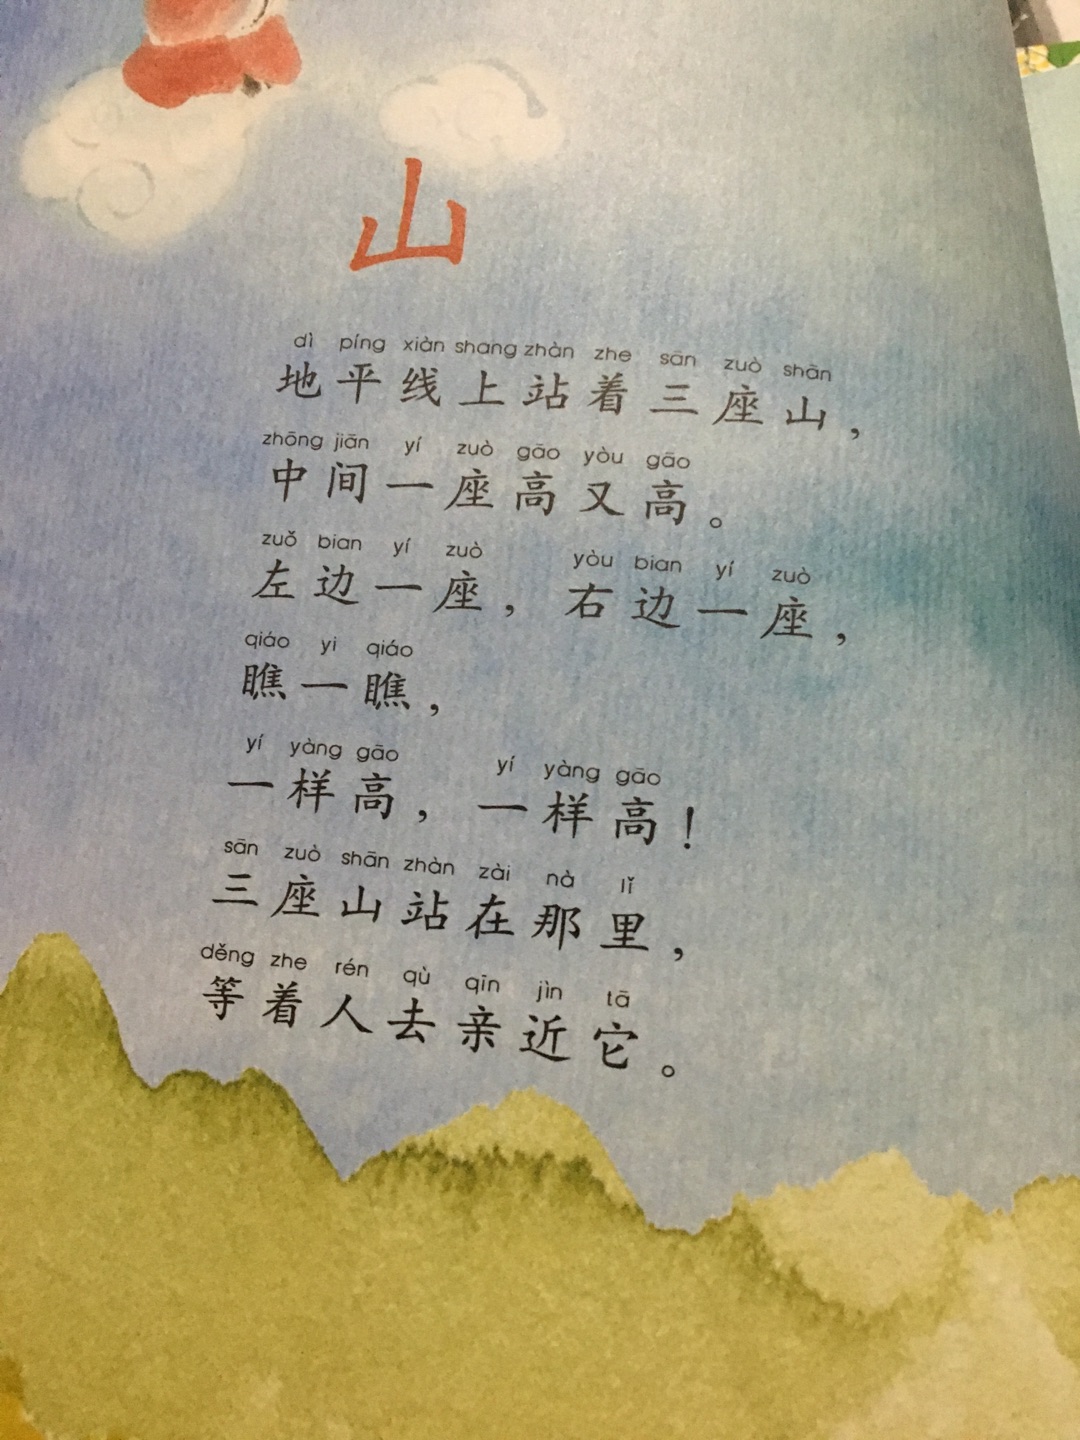 山
dì píng xiàn shang zhàn zhe sān zuò shān
地平线上站着三座山，
zhōng jiān yí zuò gāo yòu gāo
中间一座高又高。
zuǒ bian yí zuò yòu bian yí zuò
左边一座，右边一座，
qiáo yi qiáo
瞧一瞧，
yí yàng gāo yí yàng gāo
一样高，一样高！
sān zuò shān zhàn zài nà lǐ
三座山站在那里，
děng zhe rén qù qīn jìn tā
等着人去亲近它。